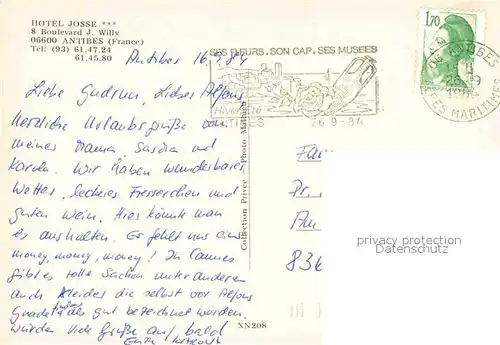 HOTEL JOSSE ***
8 Boulevard J. Willy
06600 ANTIBES (France)
Tel: (93) 61.47.24
61.45.80
Antibes 16.9.84
Liebe Gudrun, Lieber Alfons
herzliche Urlaubsgrüße von
meines Mama und
Wir haben wunderbares
Wetter, leckeres Fresserchen und
guten Wein. Hies könnte man
es aushalten. Es fehlt nur eins
money, money, money! In Cannes
gibt es tolle Sachen unter anderem
auch Kleider die selbst vor Alfons
Gnade als gut bezeichnet werden.
würden Viele Grüße auf bald
Collection Privée - Photo Mathieu
XN208
SES FLEURS. SON CAP. SES MUSEES
Hiver Eté
ANTIBES
26-9-84
1,70
06 ANTIBES
26-9
ALPES MARITIMES
Fa
Pr
Am
836
privacy protection
Datenschutz